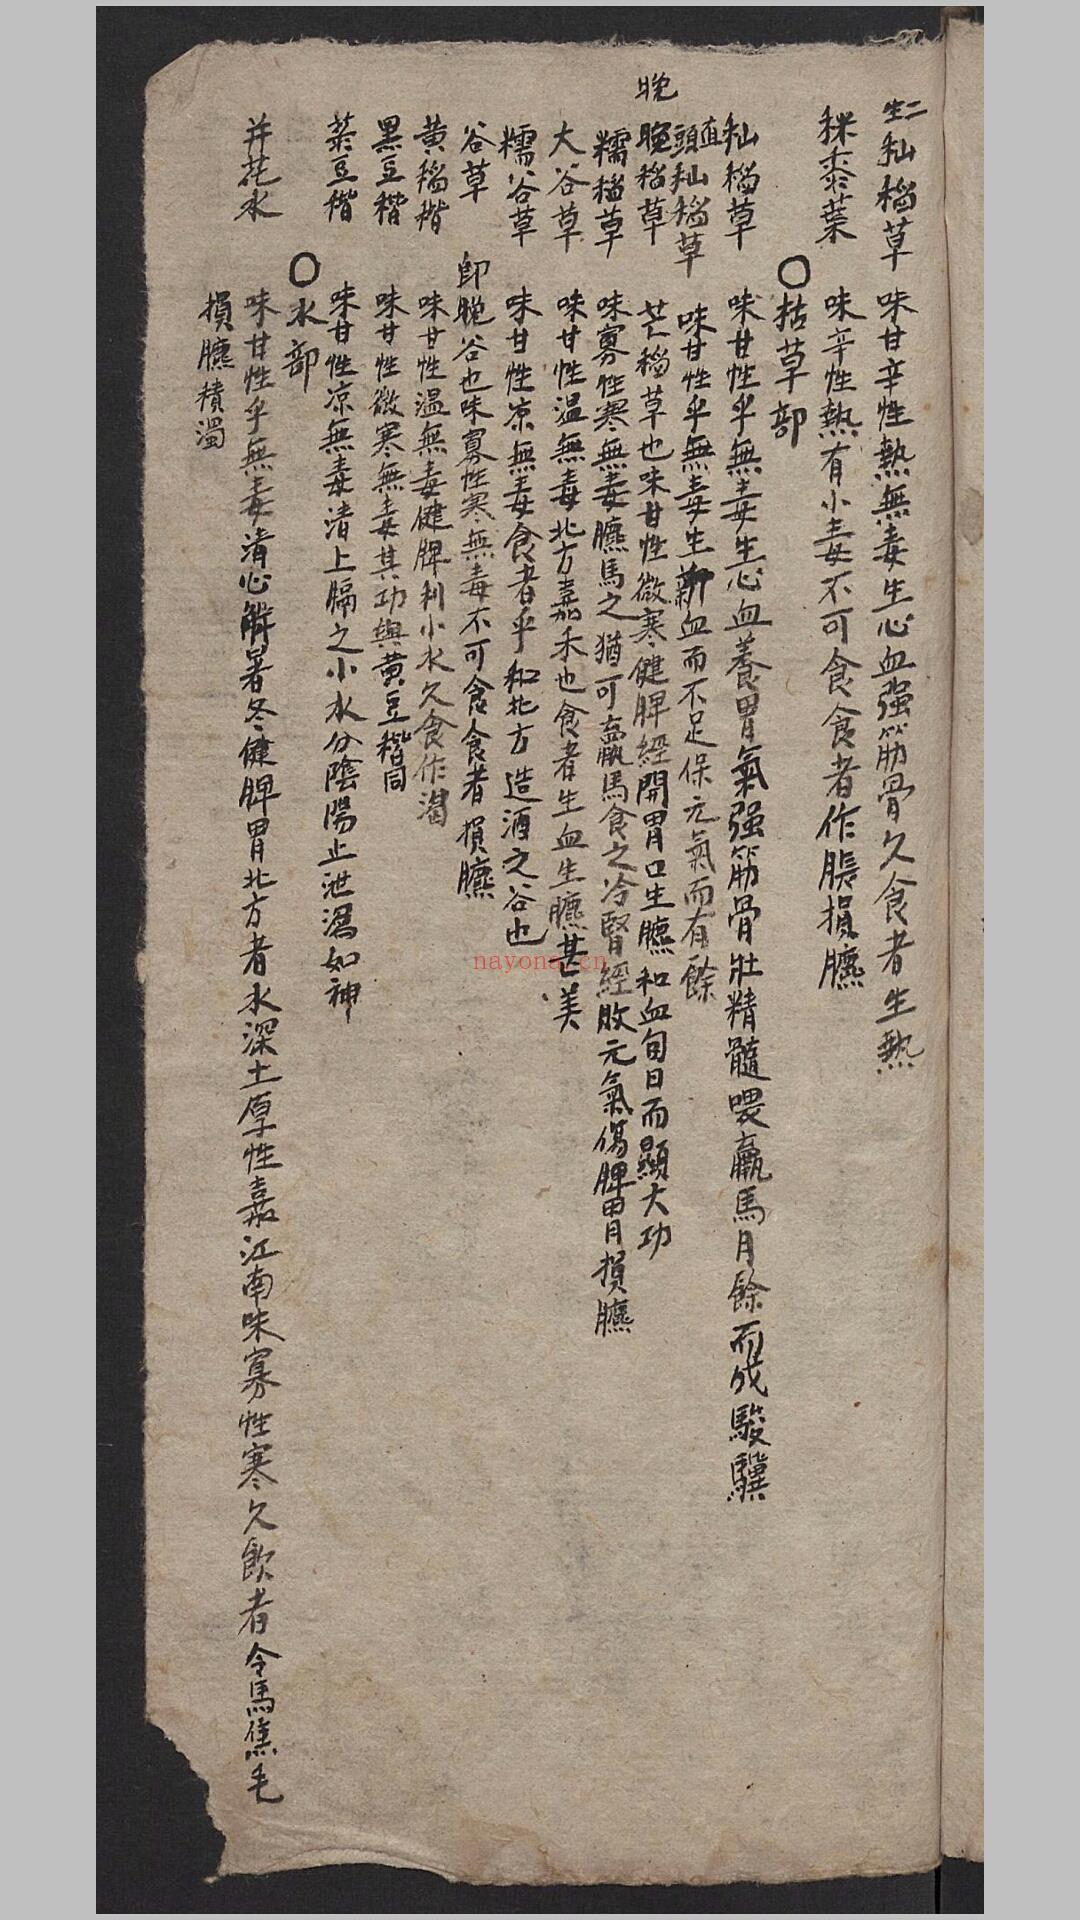 二生籼稻草 味甘辛性熱無毒生心血强筋骨久食者生熱
秣黍葉 味辛性熱有小毒不可食食者作脹損臕
〇枯草部
籼稻草 味甘性乎無毒生心血養胃氣强筋骨壯精髓喂羸馬月餘而成駿驥
直頭籼稻草 味甘性乎無毒生新血而不足保元氣而有餘
晚
晚稻草 芒稻草也味甘性微寒健脾經開胃口生臕和血旬日而顯大功
糯稻草 味寡性寒無毒臕馬之猶可羸馬食之冷腎經敗元氣傷脾胃損臕
大谷草 味甘性温無毒北方嘉禾也食者生血生臕甚美
糯谷草 味甘性凉無毒食者乎和北方造酒之谷也
谷草 即晚谷也味寡性寒無毒不可食食者損臕
黄稻稭 味甘性温無毒健脾利小水久食作瀉
黑豆稭 味甘性微寒無毒其功與黄豆稭同
菉豆稭 味甘性凉無毒清上膈之小水分陰陽止泄瀉如神
〇水部
井花水 味甘性乎無毒清心解暑冬健脾胃北方者水深土厚性嘉江南味寡性寒久飲者令馬焦毛
損臕積濁
nayona.cn